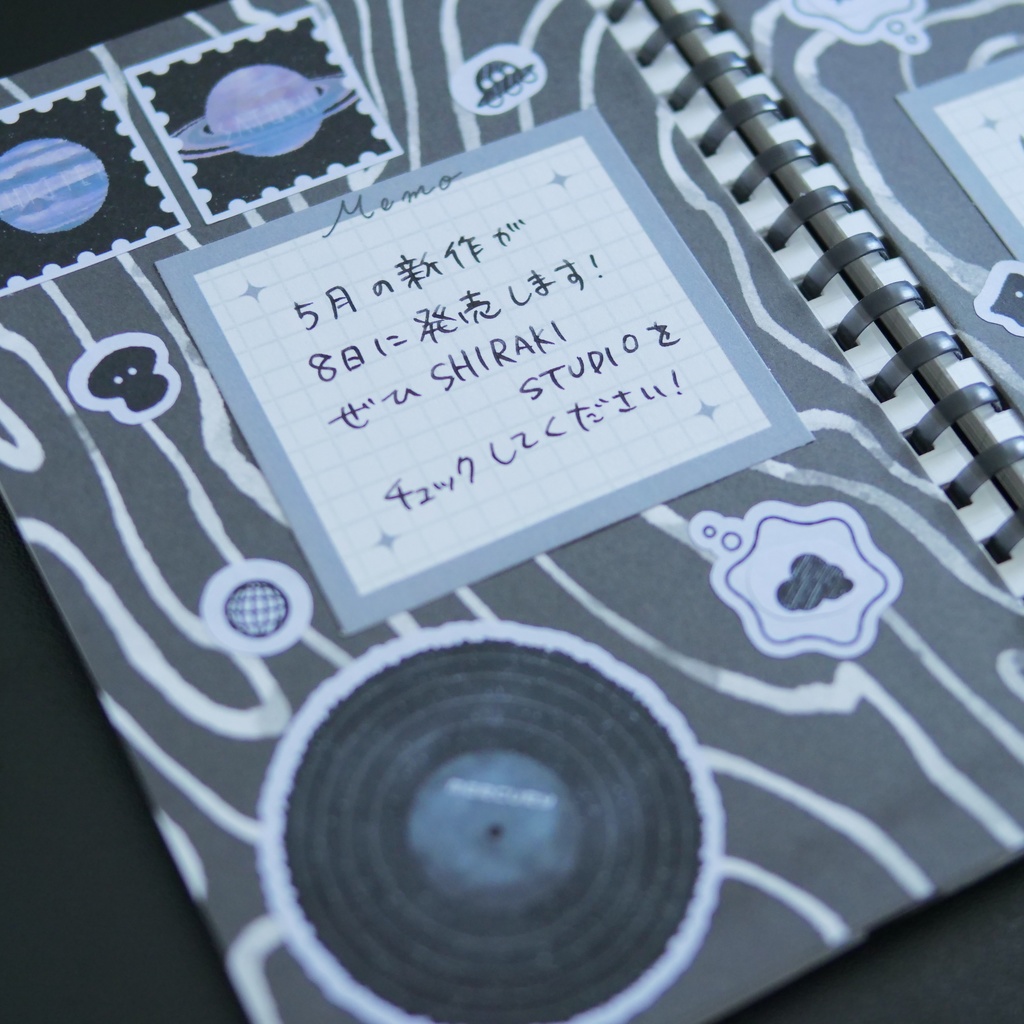 Memo
5月の新作が
8日に発売します!
ぜひSHIRAKI
STUDIOを
チェックしてください!
MERCURY